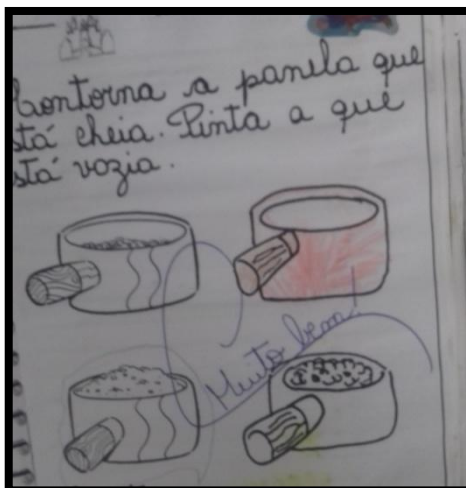 Contorna a panela que
stá cheia. Pinta a que
stá vozia.
Muito bem!